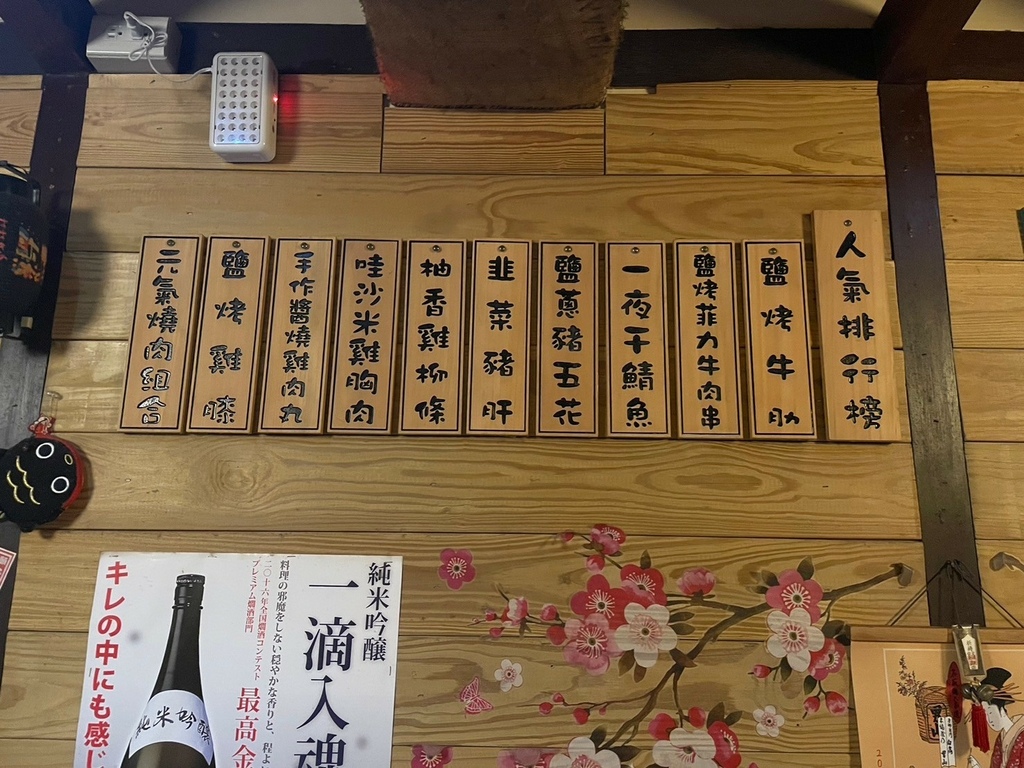 人氣排行榜
鹽烤牛肋
鹽烤菲力牛肉串
一夜干鯖魚
鹽蔥豬五花
韭菜豬肝
柚香雞柳條
哇沙米雞胸肉
手作醬燒雞肉丸
鹽烤雞膝
元氣燒肉組合
純米吟醸
一滴入魂
料理の邪魔をしない穏やかな香りと、程よい
二〇十六年全国燗酒コンテスト
プレミアム燗酒部門
最高金
キレの中にも感じ
純米吟醸